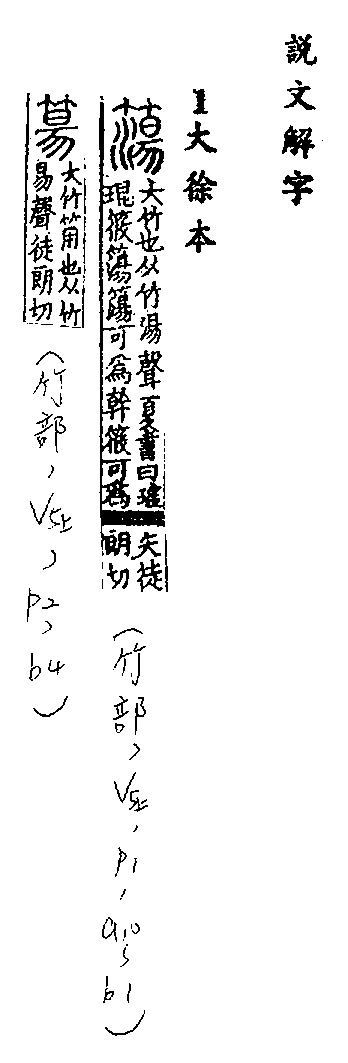 說文解字
1大徐本
簜大竹也从竹湯聲夏書曰瑤
琨筱簜簜可為幹筱可為
矢徒
朗切
(竹部,V5上,P1,a10,b1)
大竹筩也从竹
昜聲徒朗切
(竹部,V5上,P2,b4)